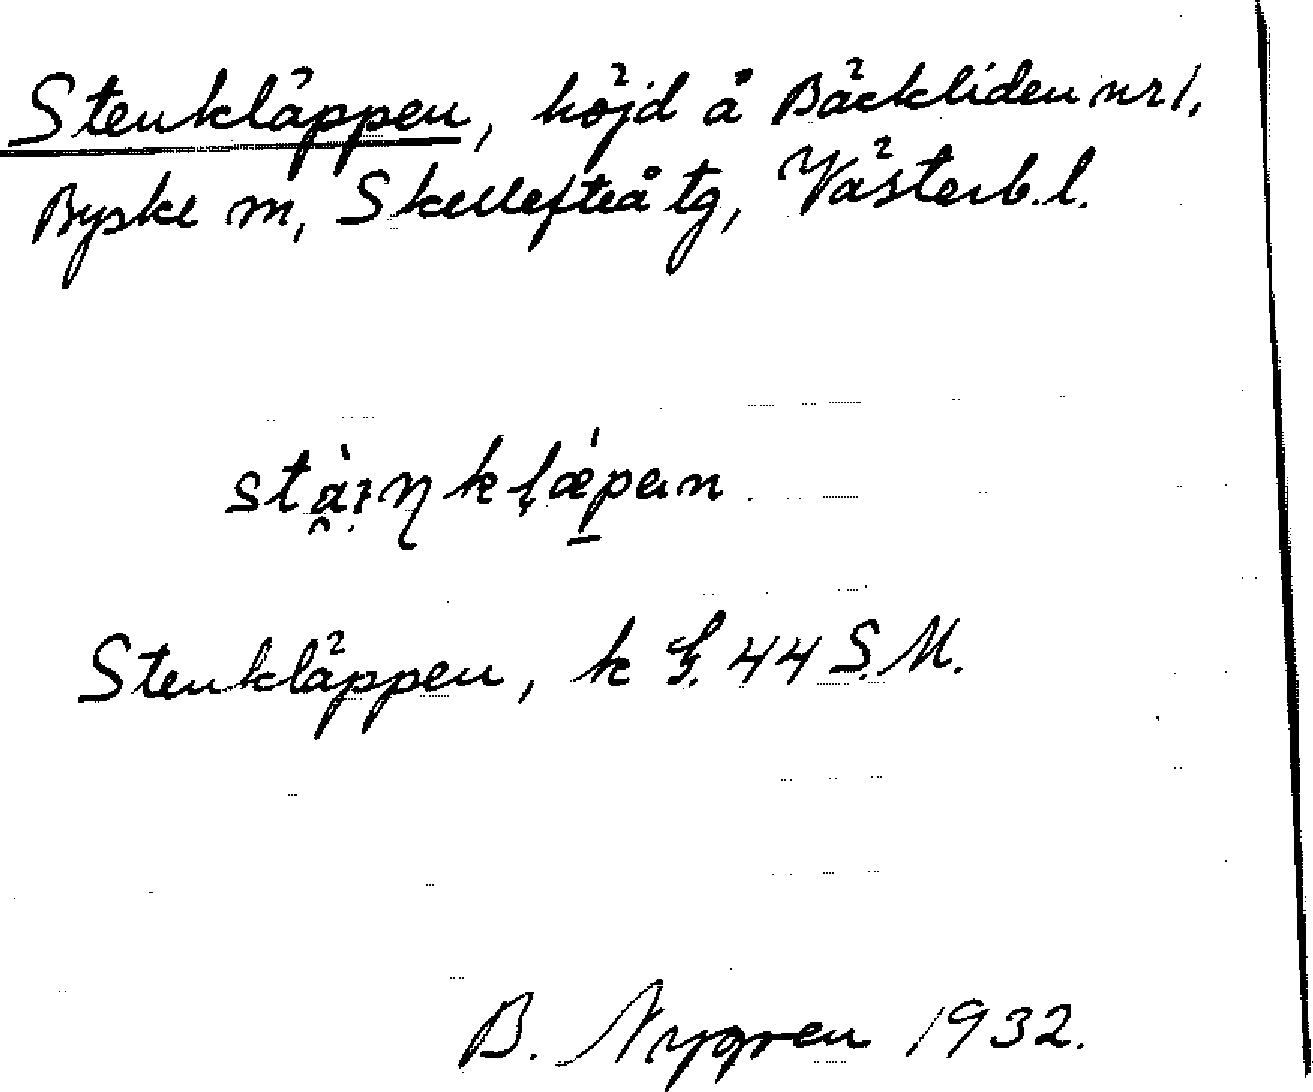 Stenkläppen, höjd å Bäckliden nr 1,
Byske sn, Skellefteå tg, Västerb. l.
Stenkläppen, k G. 44 S.M.
B. Nygren 1932.